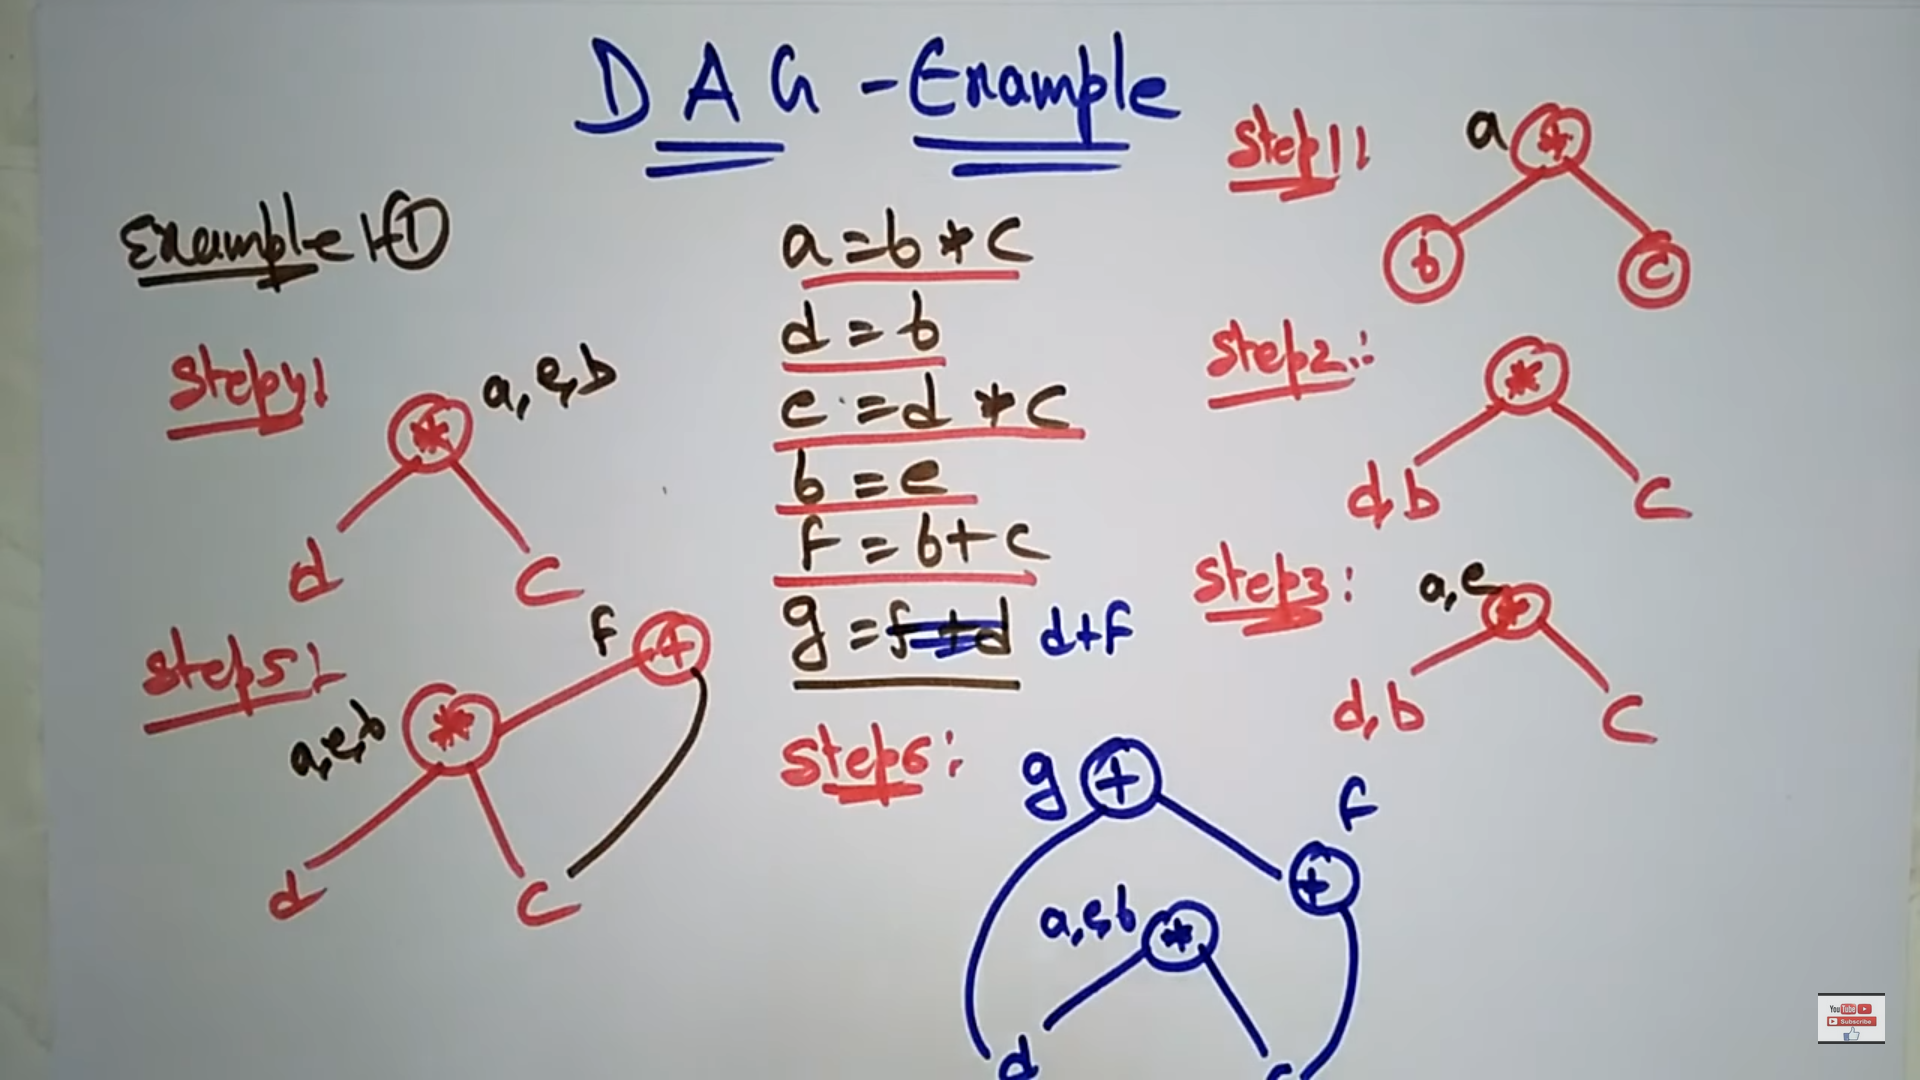 DAG - Example
Example :- 1
a = b * c
d = b
e = d * c
b = e
f = b + c
g = f + d d + f
Step 1:
a *
b c
Step 2:
*
d, b c
Step 3:
a, e *
d, b c
Step 4:
a, e, b
*
d c
Step 5:
f +
a, e, b *
d c
Step 6:
g +
f
+
a, e, b *
d c
YouTube
Subscribe